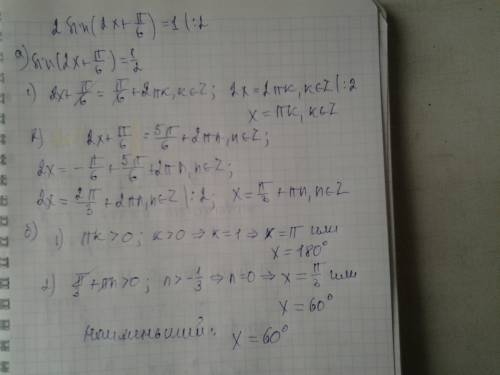 2 sin(2x + π/6) = 1 |:2
а) sin(2x + π/6) = 1/2
1) 2x + π/6 = π/6 + 2πk, k∈Z; 2x = 2πk, k∈Z |:2
x = πk, k∈Z
2) 2x + π/6 = 5π/6 + 2πn, n∈Z;
2x = -π/6 + 5π/6 + 2πn, n∈Z;
2x = 2π/3 + 2πn, n∈Z |:2, x = π/3 + πn, n∈Z
б) 1) πk > 0; k > 0 ⇒ k = 1 ⇒ x = π или
x = 180°
2) π/3 + πn > 0; n > -1/3 ⇒ n = 0 ⇒ x = π/3 или
x = 60°
Наименьший: x = 60°